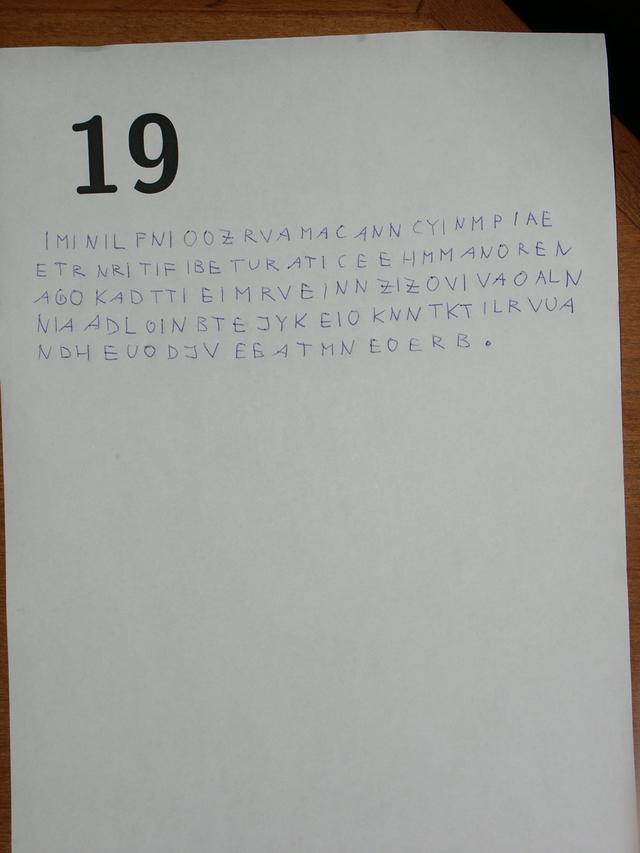 19
IMINIL FNIOOZ RVAMACANN CYINMPIAE
ETR NRITIF IBE TUR ATICEEHMMANOREN
AGO KADTTI EIMRVEINN ZIZOVIVAOALN
NIA ADLOINBTE JYK EIO KNN TKTILRVUA
NDH EUODJV EEATMN EOERB.